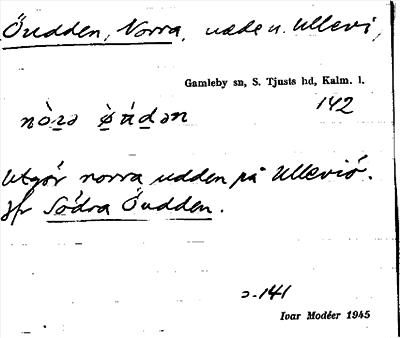 Öudden, Norra, udde u. Ullevi,
Gamleby sn, S. Tjusts hd, Kalm. l.
142
nò̱rə ø̱̀údən
Utgör norra udden på Ulleviö.
Jfr Södra Öudden.
s. 141
Ivar Modéer 1945